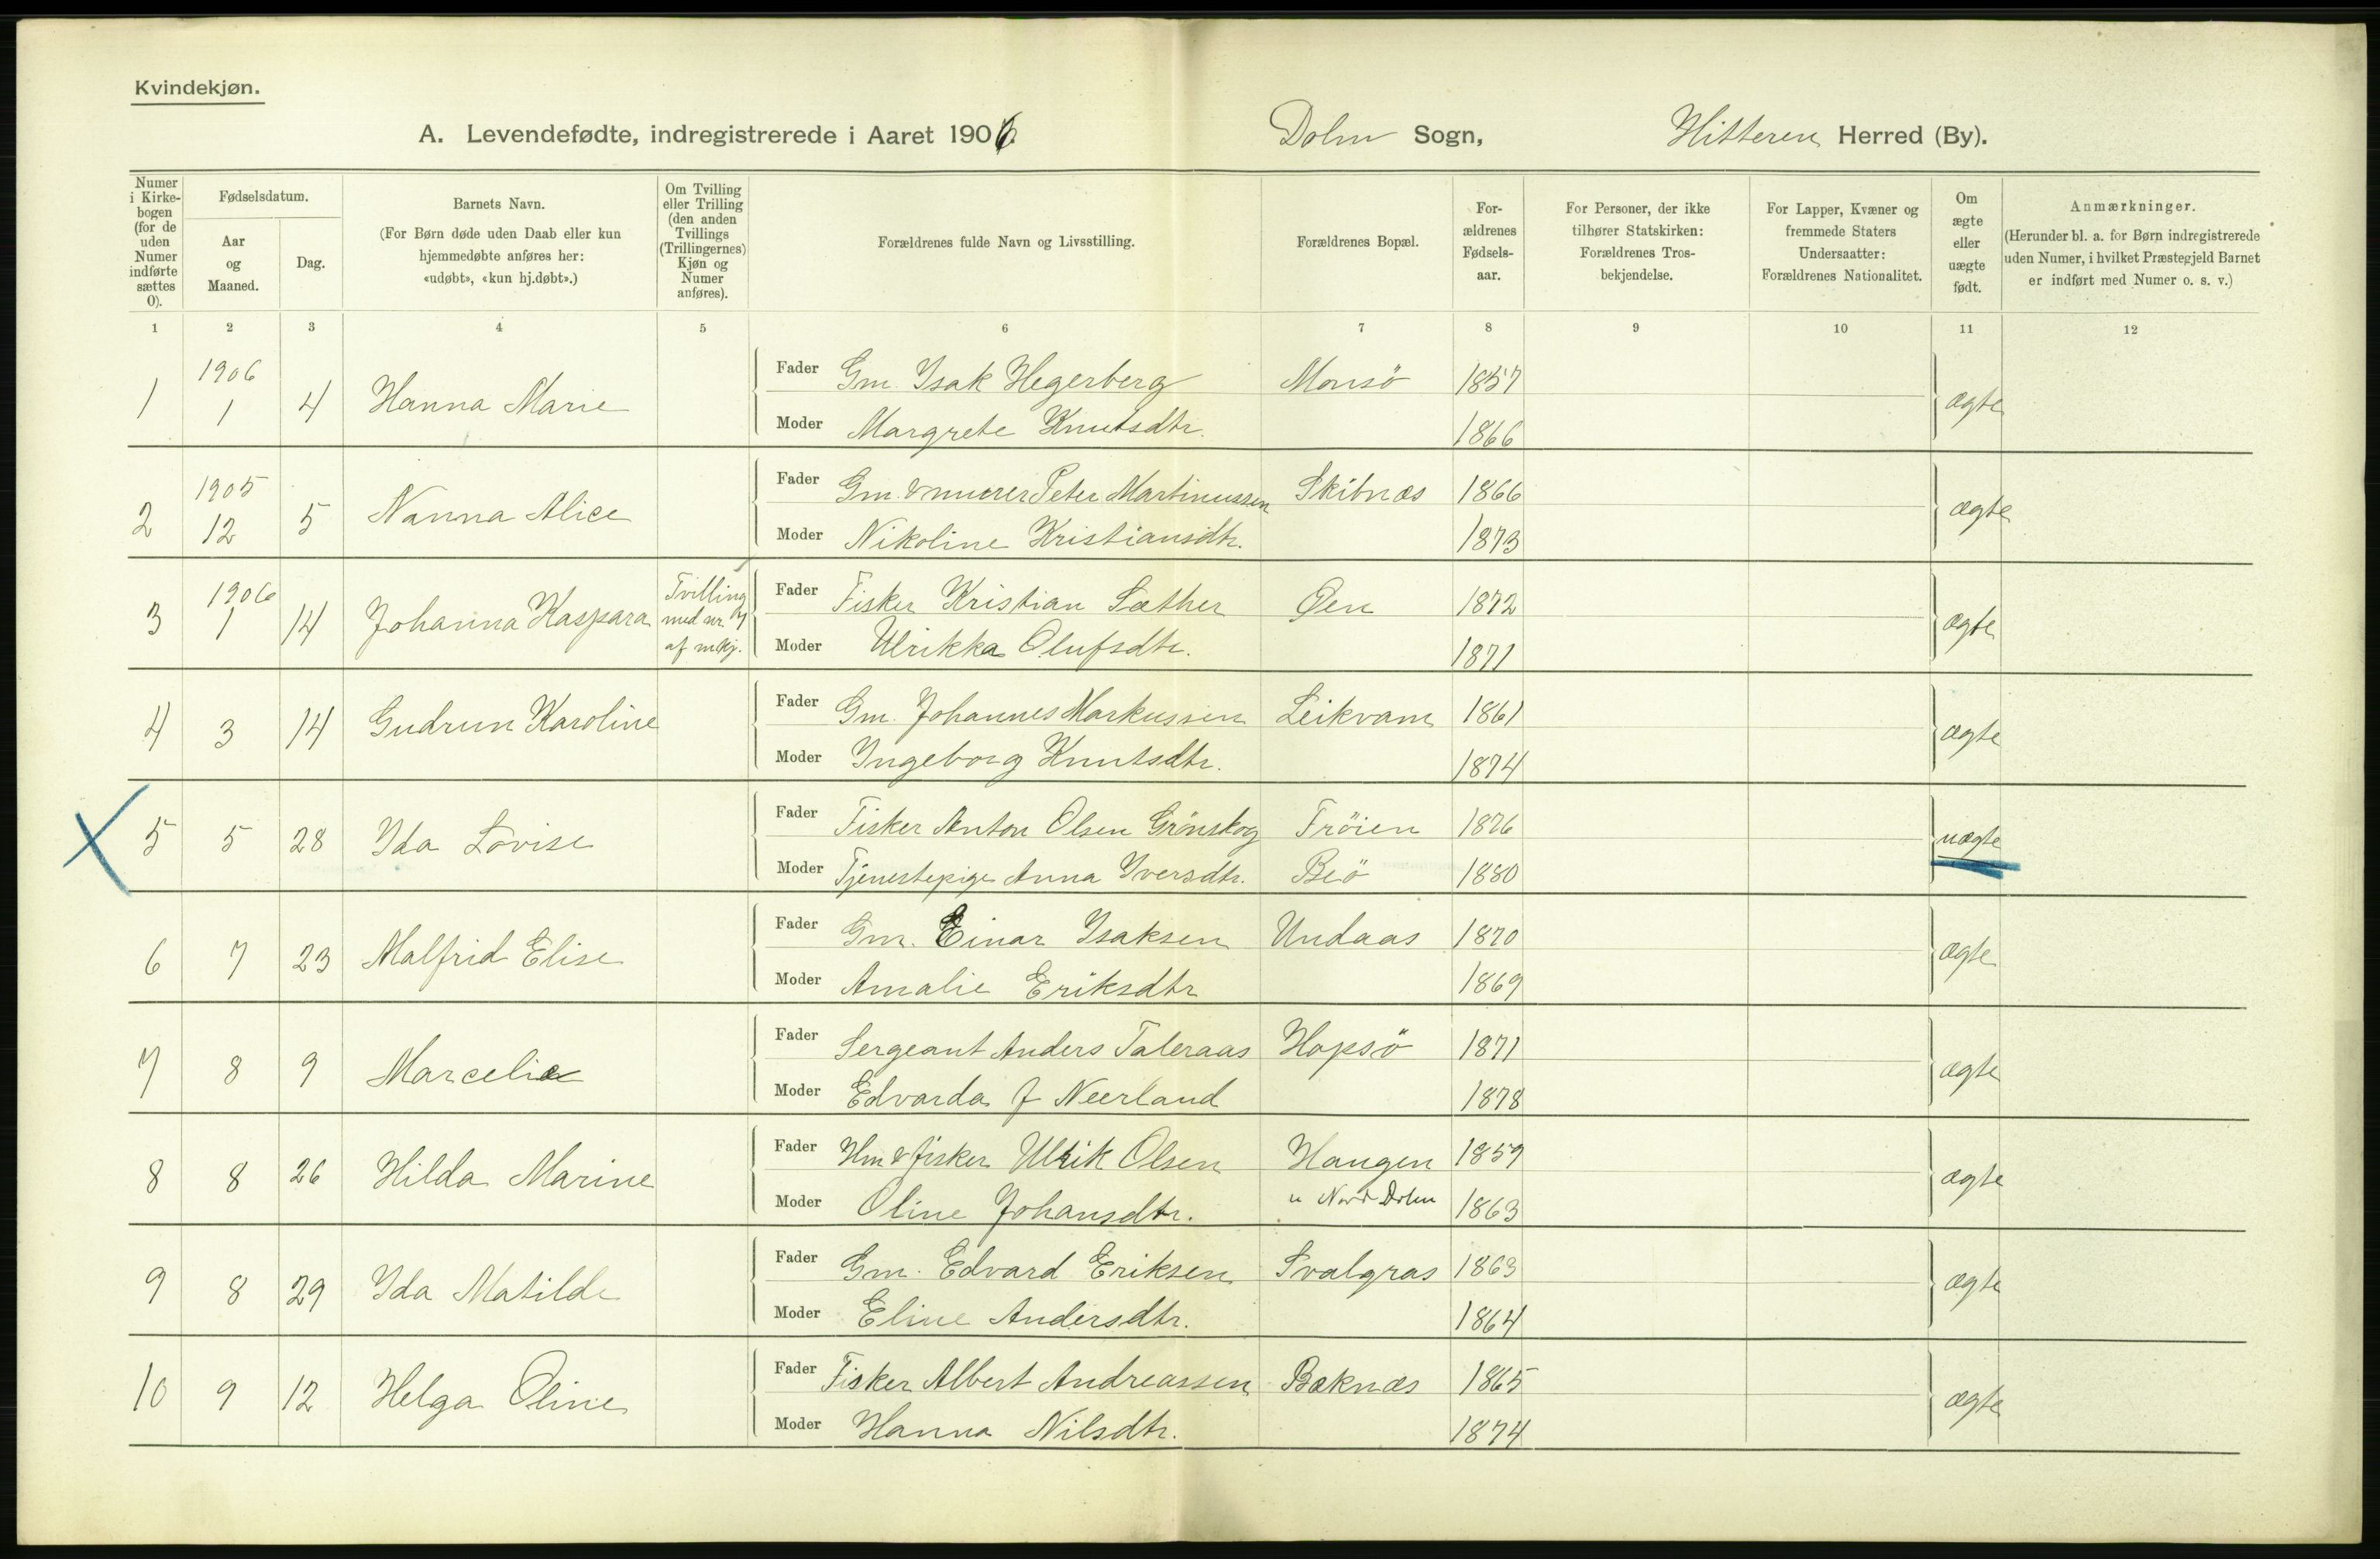 Kvindekjøn.
A. Levendefødte, indregistrerede i Aaret 1906. Dolm Sogn, Hitteren Herred (By).
Numer i Kirkebogen (for de uden Numer indførte sættes 0).
Fødselsdatum.
Aar og Maaned.
Dag.
Barnets Navn.
(For Børn døde uden Daab eller kun hjemmedøbte anføres her: «udøbt», «kun hj.døbt».)
Om Tvilling eller Trilling (den anden Tvillings (Trillingernes) Kjøn og Numer anføres).
Forældrenes fulde Navn og Livsstilling.
Forældrenes Bopæl.
Forældrenes Fødselsaar.
For Personer, der ikke tilhører Statskirken: Forældrenes Trosbekjendelse.
For Lapper, Kvæner og fremmede Staters Undersaatter: Forældrenes Nationalitet.
Om ægte eller uægte født.
Anmærkninger.
(Herunder bl. a. for Børn indregistrerede uden Numer, i hvilket Præstegjeld Barnet er indført med Numer o. s. v.)
1 2 3 4 5 6 7 8 9 10 11 12
1 1906 1 4 Hanna Marie Fader Gm. Isak Hegerberg Monsö 1857 ægte
Moder Margrete Knutsdtr. 1866
2 1905 12 5 Nanna Alice Fader Gm. & murer Peter Martinussen Skibnæs 1866 ægte
Moder Nikoline Kristiansdtr. 1873
3 1906 1 14 Johanna Kaspara Tvilling med nr. 7 af mkj. Fader Fisker Kristian Sæther Øen 1872 ægte
Moder Ulrikka Olufsdtr. 1871
4 3 14 Gudrun Karoline Fader Gm. Johannes Markussen Leikvam 1861 ægte
Moder Ingeborg Knutsdtr. 1874
5 5 28 Ida Lovise Fader Fisker Anton Olsen Grönskog Fröien 1876 uægte
Moder Tjenestepige Anna Iversdtr. Beö 1880
6 7 23 Malfrid Elise Fader Gm. Einar Isaksen Undaas 1870 ægte
Moder Amalie Eriksdtr 1869
7 8 9 Marcelie Fader Sergeant Anders Taleraas Hopsö 1871 ægte
Moder Edvarda J Neerland 1878
8 8 26 Hilda Marine Fader Hm & fisker Ulrik Olsen Haugen 1859 ægte
Moder Oline Johansdtr. u Nord Dolm 1863
9 8 29 Ida Matilde Fader Gm. Edvard Eriksen Svalgras 1863 ægte
Moder Eline Andersdtr. 1864
10 9 12 Helga Oline Fader Fisker Albert Andreassen Baknæs 1865 ægte
Moder Hanna Nilsdtr. 1874